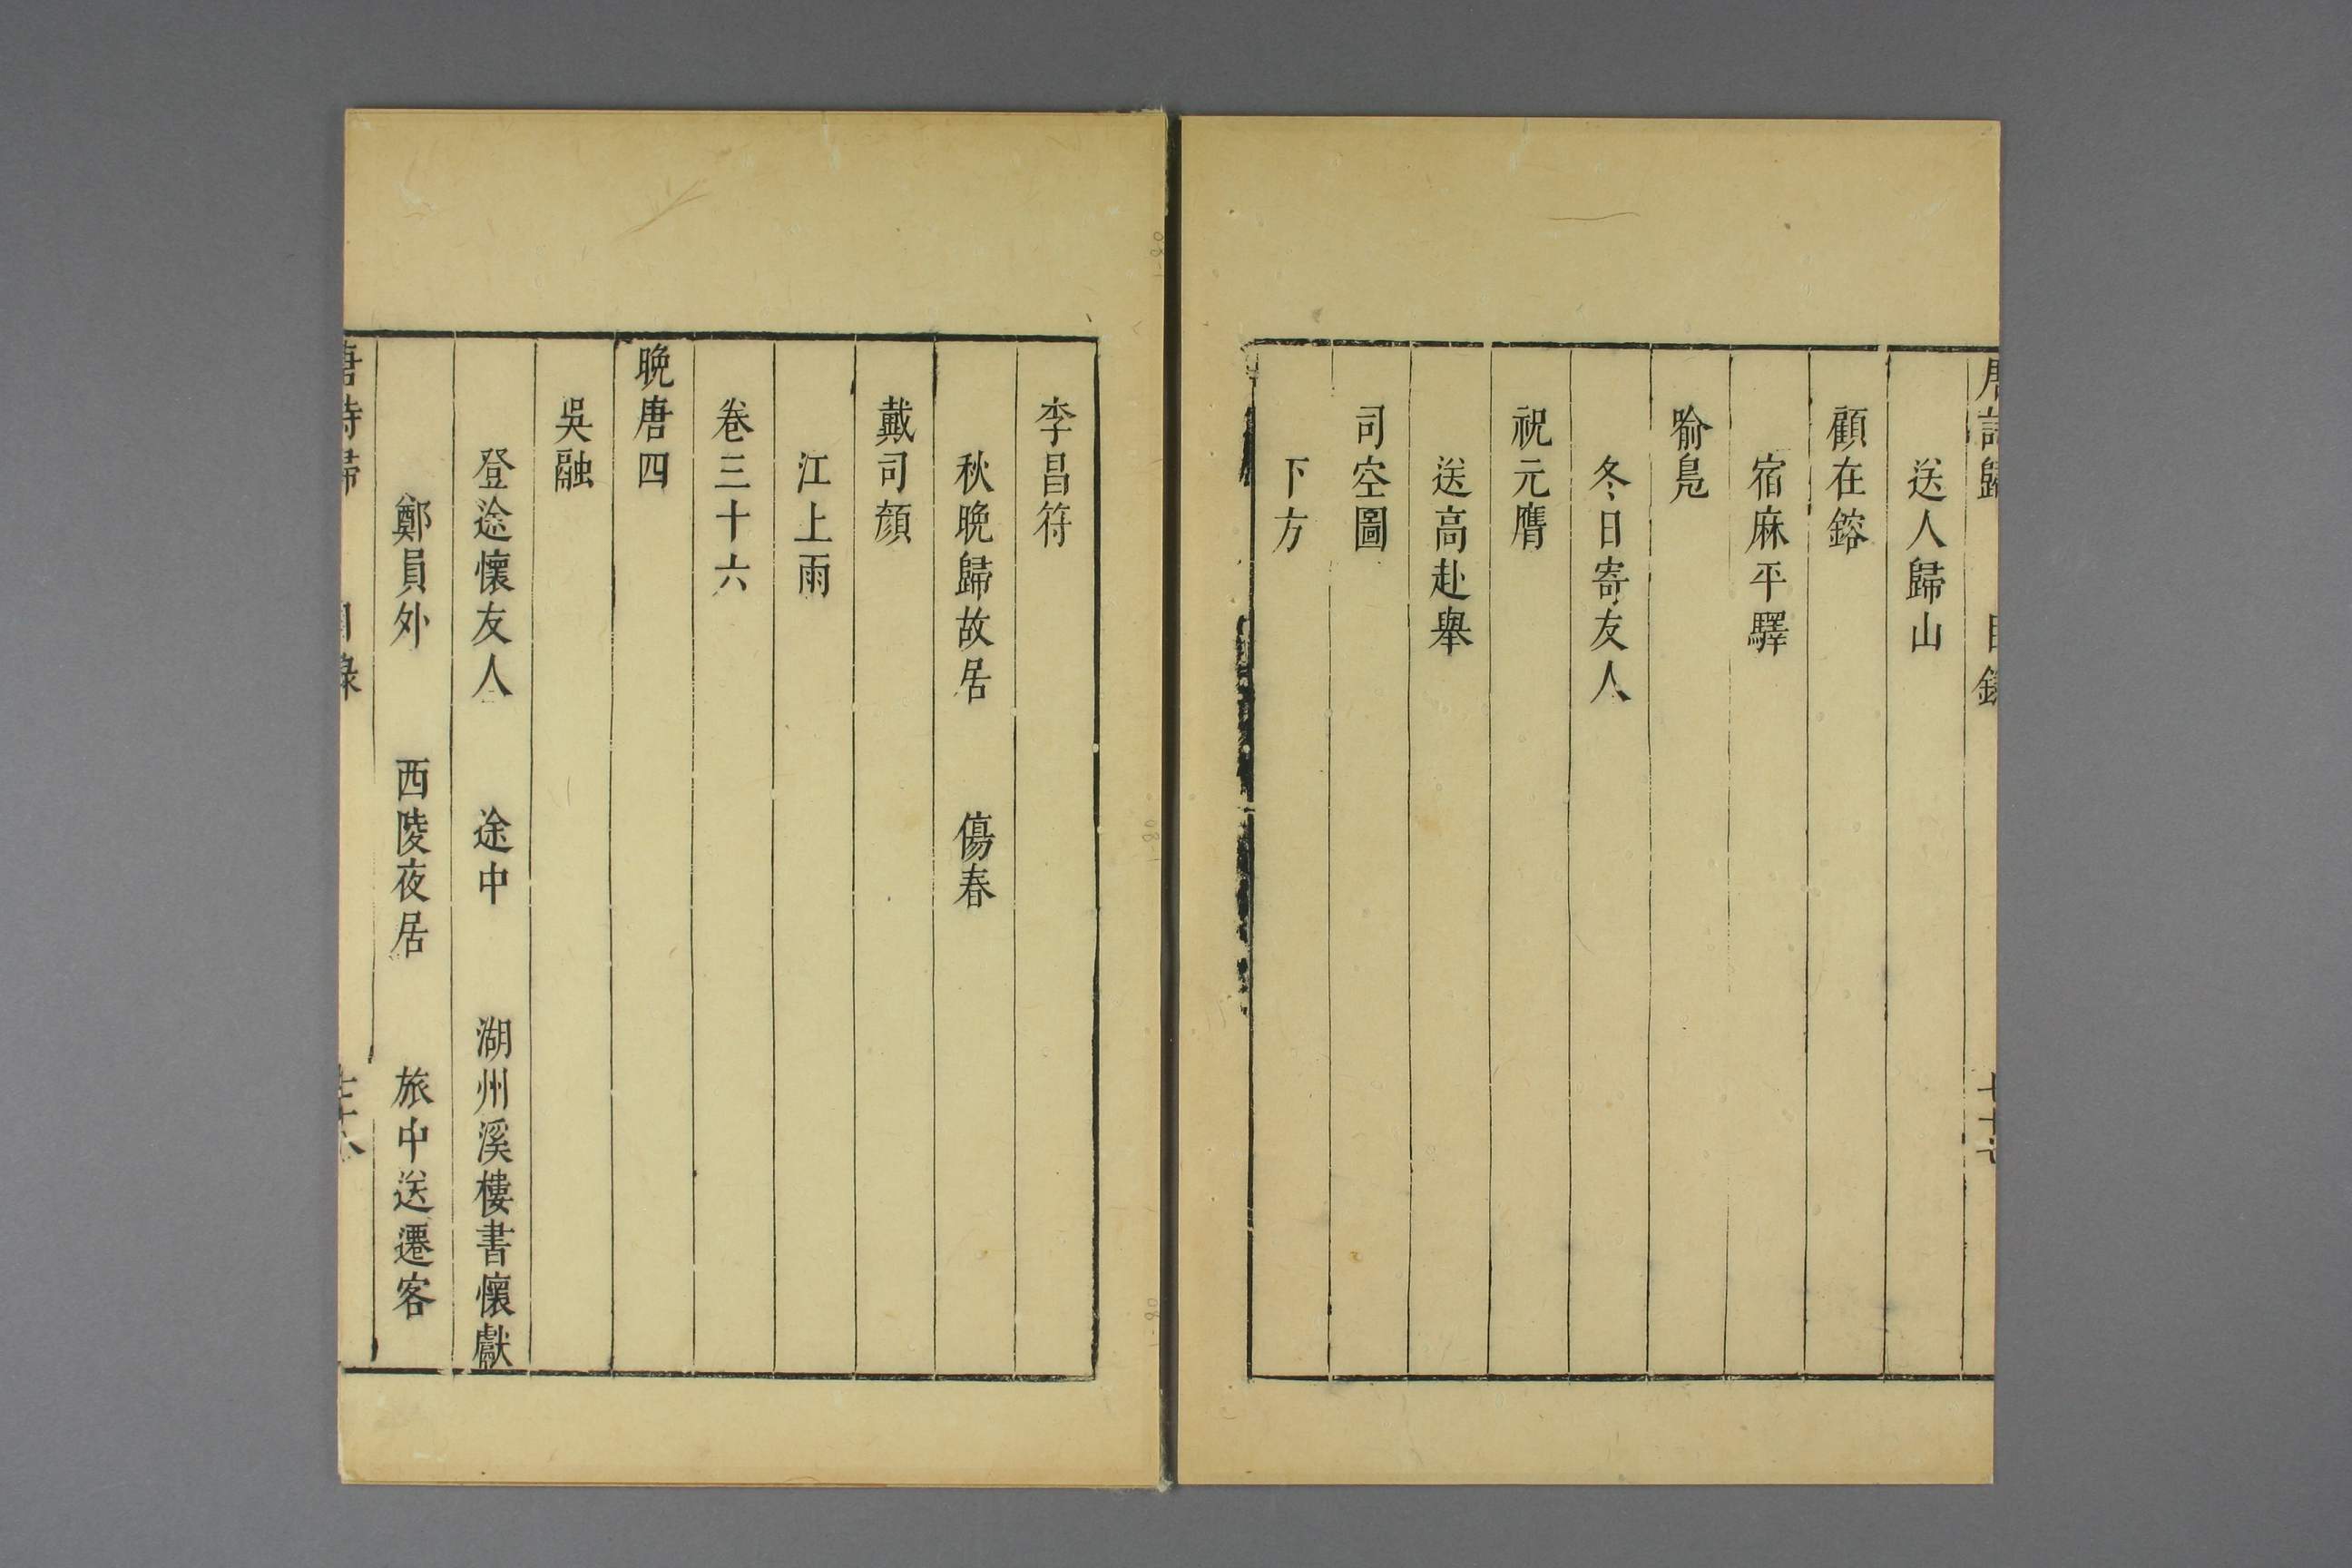 唐詩歸 目錄 七十七
送人歸山
顧在鎔
宿麻平驛
喻鳧
冬日寄友人
祝元膺
送高赴舉
司空圖
下方
李昌符
秋晚歸故居 傷春
戴司顏
江上雨
卷三十六
晚唐四
吳融
登途懷友人 途中 湖州溪樓書懷獻
鄭員外 西陵夜居 旅中送遷客
唐詩歸 目錄 七十八